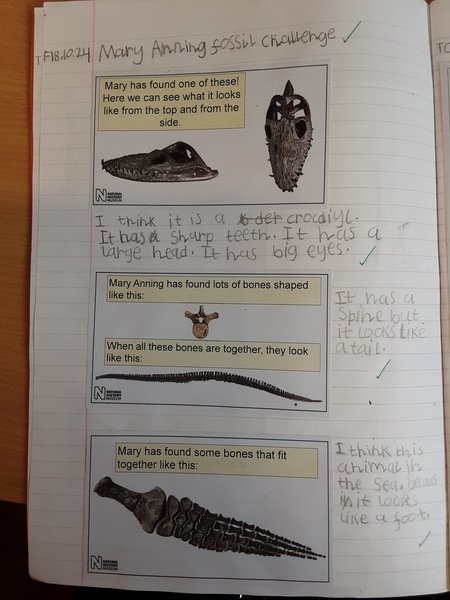 TF18.10.24 Mary Anning fossil challenge
Mary has found one of these!
Here we can see what it looks
like from the top and from the
side.
NATURAL
HISTORY
MUSEUM
I think it is a crocdiyl.
It has a sharp teeth. It has a
large head. It has big eyes.
Mary Anning has found lots of bones shaped
like this:
When all these bones are together, they look
like this:
NATURAL
HISTORY
MUSEUM
It has a
Spine but
it looks like
a tail.
Mary has found some bones that fit
together like this:
NATURAL
HISTORY
MUSEUM
I think this
animal in
the sea. becaus
it looks
like a foot.